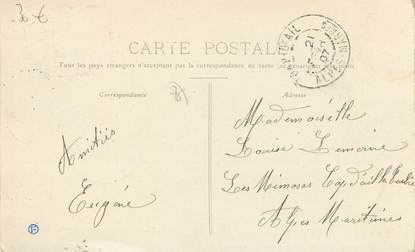 30 €
CARTE POSTALE
Tous les pays étrangers n'acceptent pas la correspondance au recto
Correspondance
Adresse
21
07
ALPES MARITIMES
Amitiés
Eugène
Mademoiselle
Louise Lemoine
Les Mimosas Cap d'ail la Turbie
Alpes Maritimes